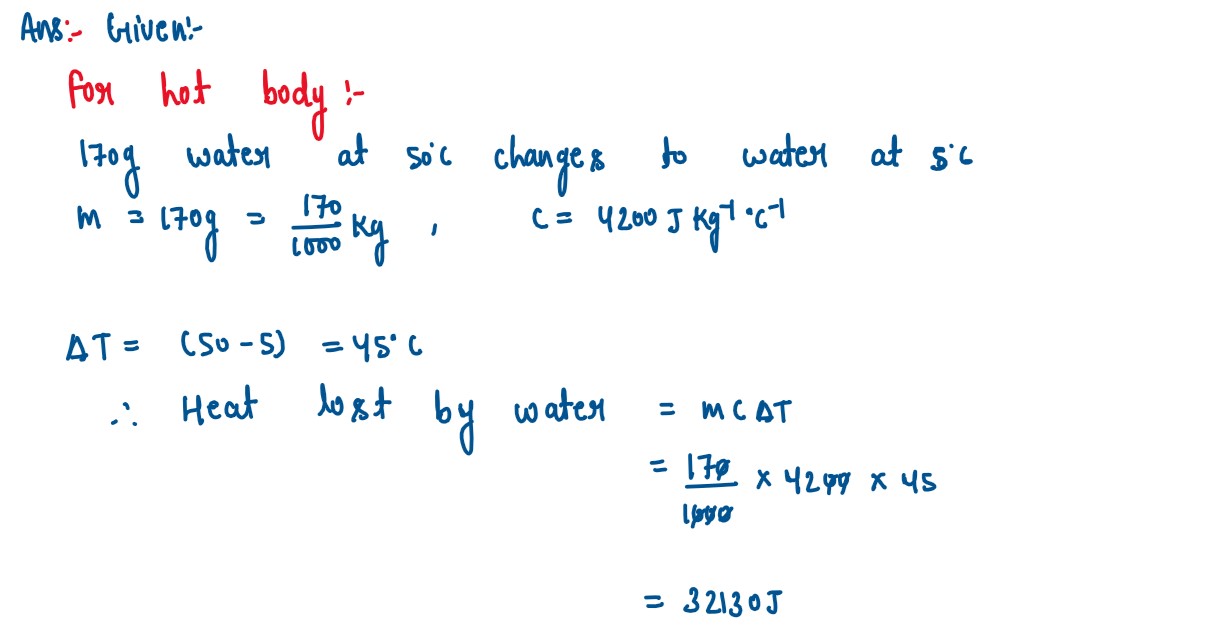 Ans:- Given:-
for hot body :-
170g water at 50°C changes to water at 5°C
m = 170g = 170/1000 Kg , C = 4200 J Kg⁻¹ °C⁻¹
ΔT = (50-5) = 45°C
∴ Heat lost by water = m C ΔT
= 170/1000 × 4200 × 45
= 32130J